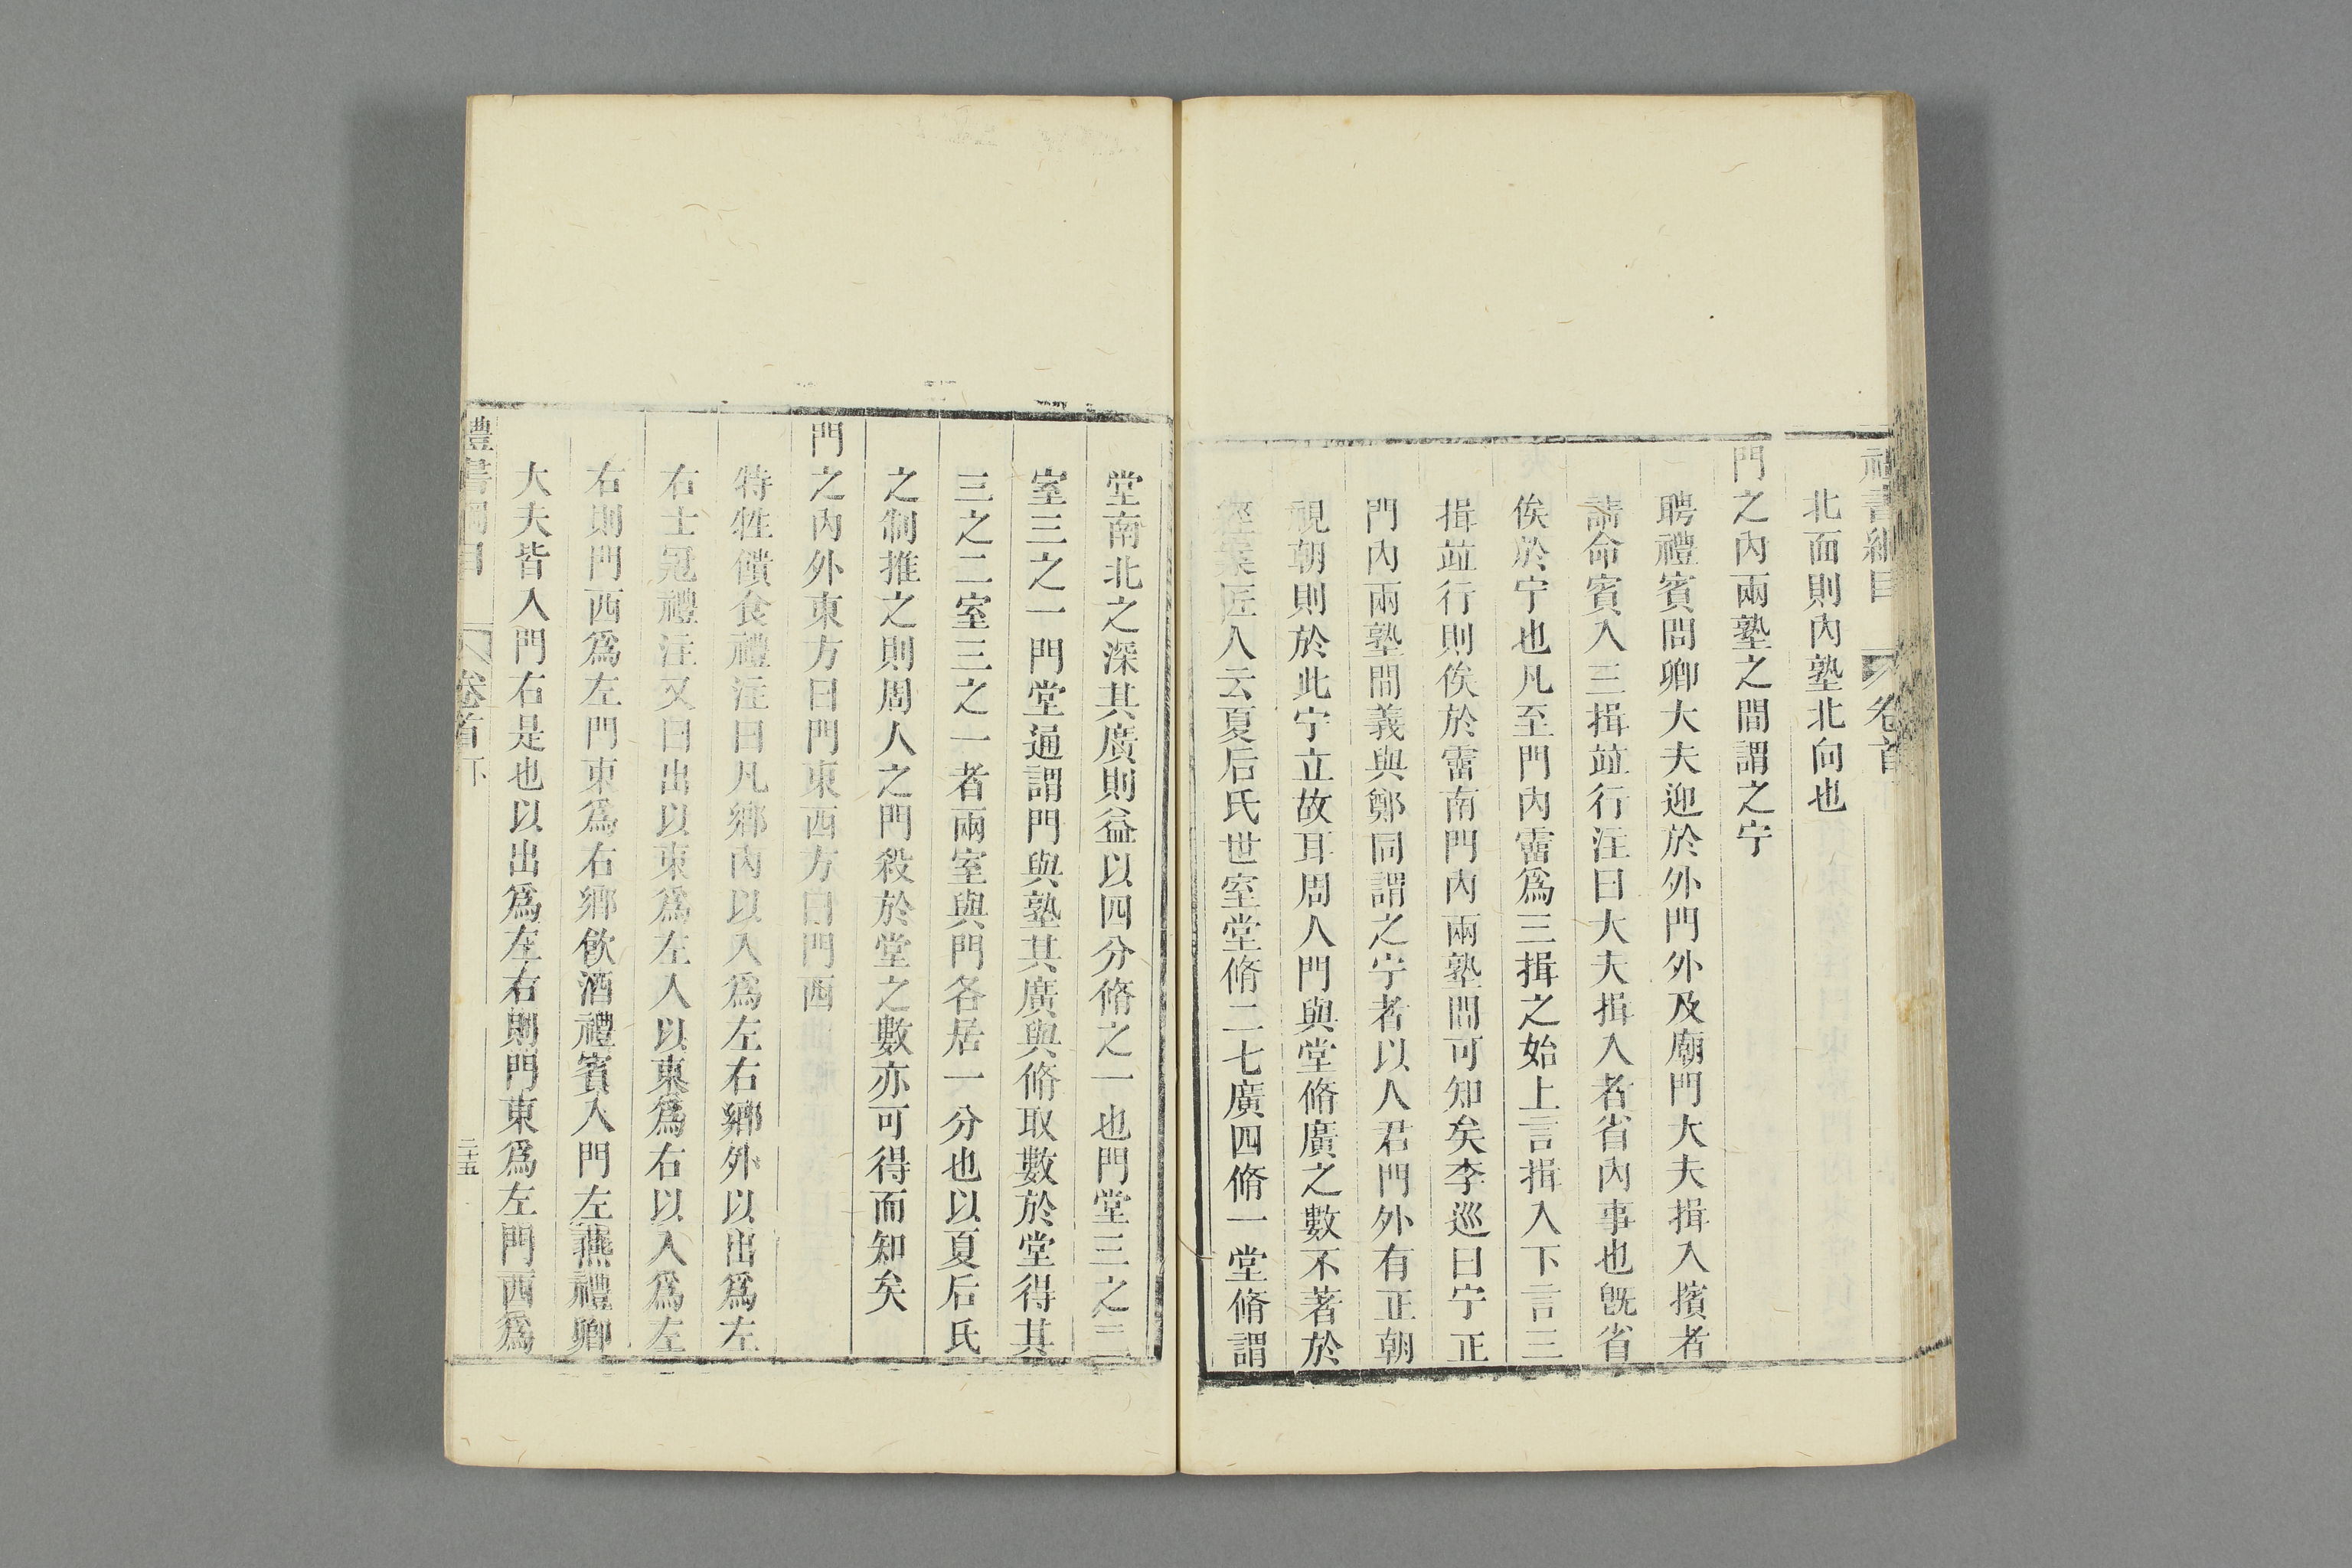 禮書綱目 卷首
北面則內塾北向也
門之內兩塾之間謂之宁
聘禮賓問卿大夫迎於外門外及廟門大夫揖入擯者
請命賓入三揖竝行注曰大夫揖入者省內事也旣省
俟於宁也凡至門內霤爲三揖之始上言揖入下言三
揖竝行則俟於霤南門內兩塾間可知矣李巡曰宁正
門內兩塾間義與鄭同謂之宁者以人君門外有正朝
視朝則於此宁立故耳周人門與堂脩廣之數不著於
經案匠人云夏后氏世室堂脩二七廣四脩一堂脩謂
堂南北之深其廣則益以四分脩之一也門堂三之二
室三之一門堂通謂門與塾其廣與脩取數於堂得其
三之二室三之一者兩室與門各居一分也以夏后氏
之制推之則周人之門殺於堂之數亦可得而知矣
門之內外東方曰門東西方曰門西
特牲饋食禮注曰凡鄉內以入爲左右鄉外以出爲左
右士冠禮注又曰出以東爲左入以東爲右以入爲左
右則門西爲左門東爲右鄉飮酒禮賓入門左燕禮卿
大夫皆入門右是也以出爲左右則門東爲左門西爲
禮書綱目 卷首下 三十五